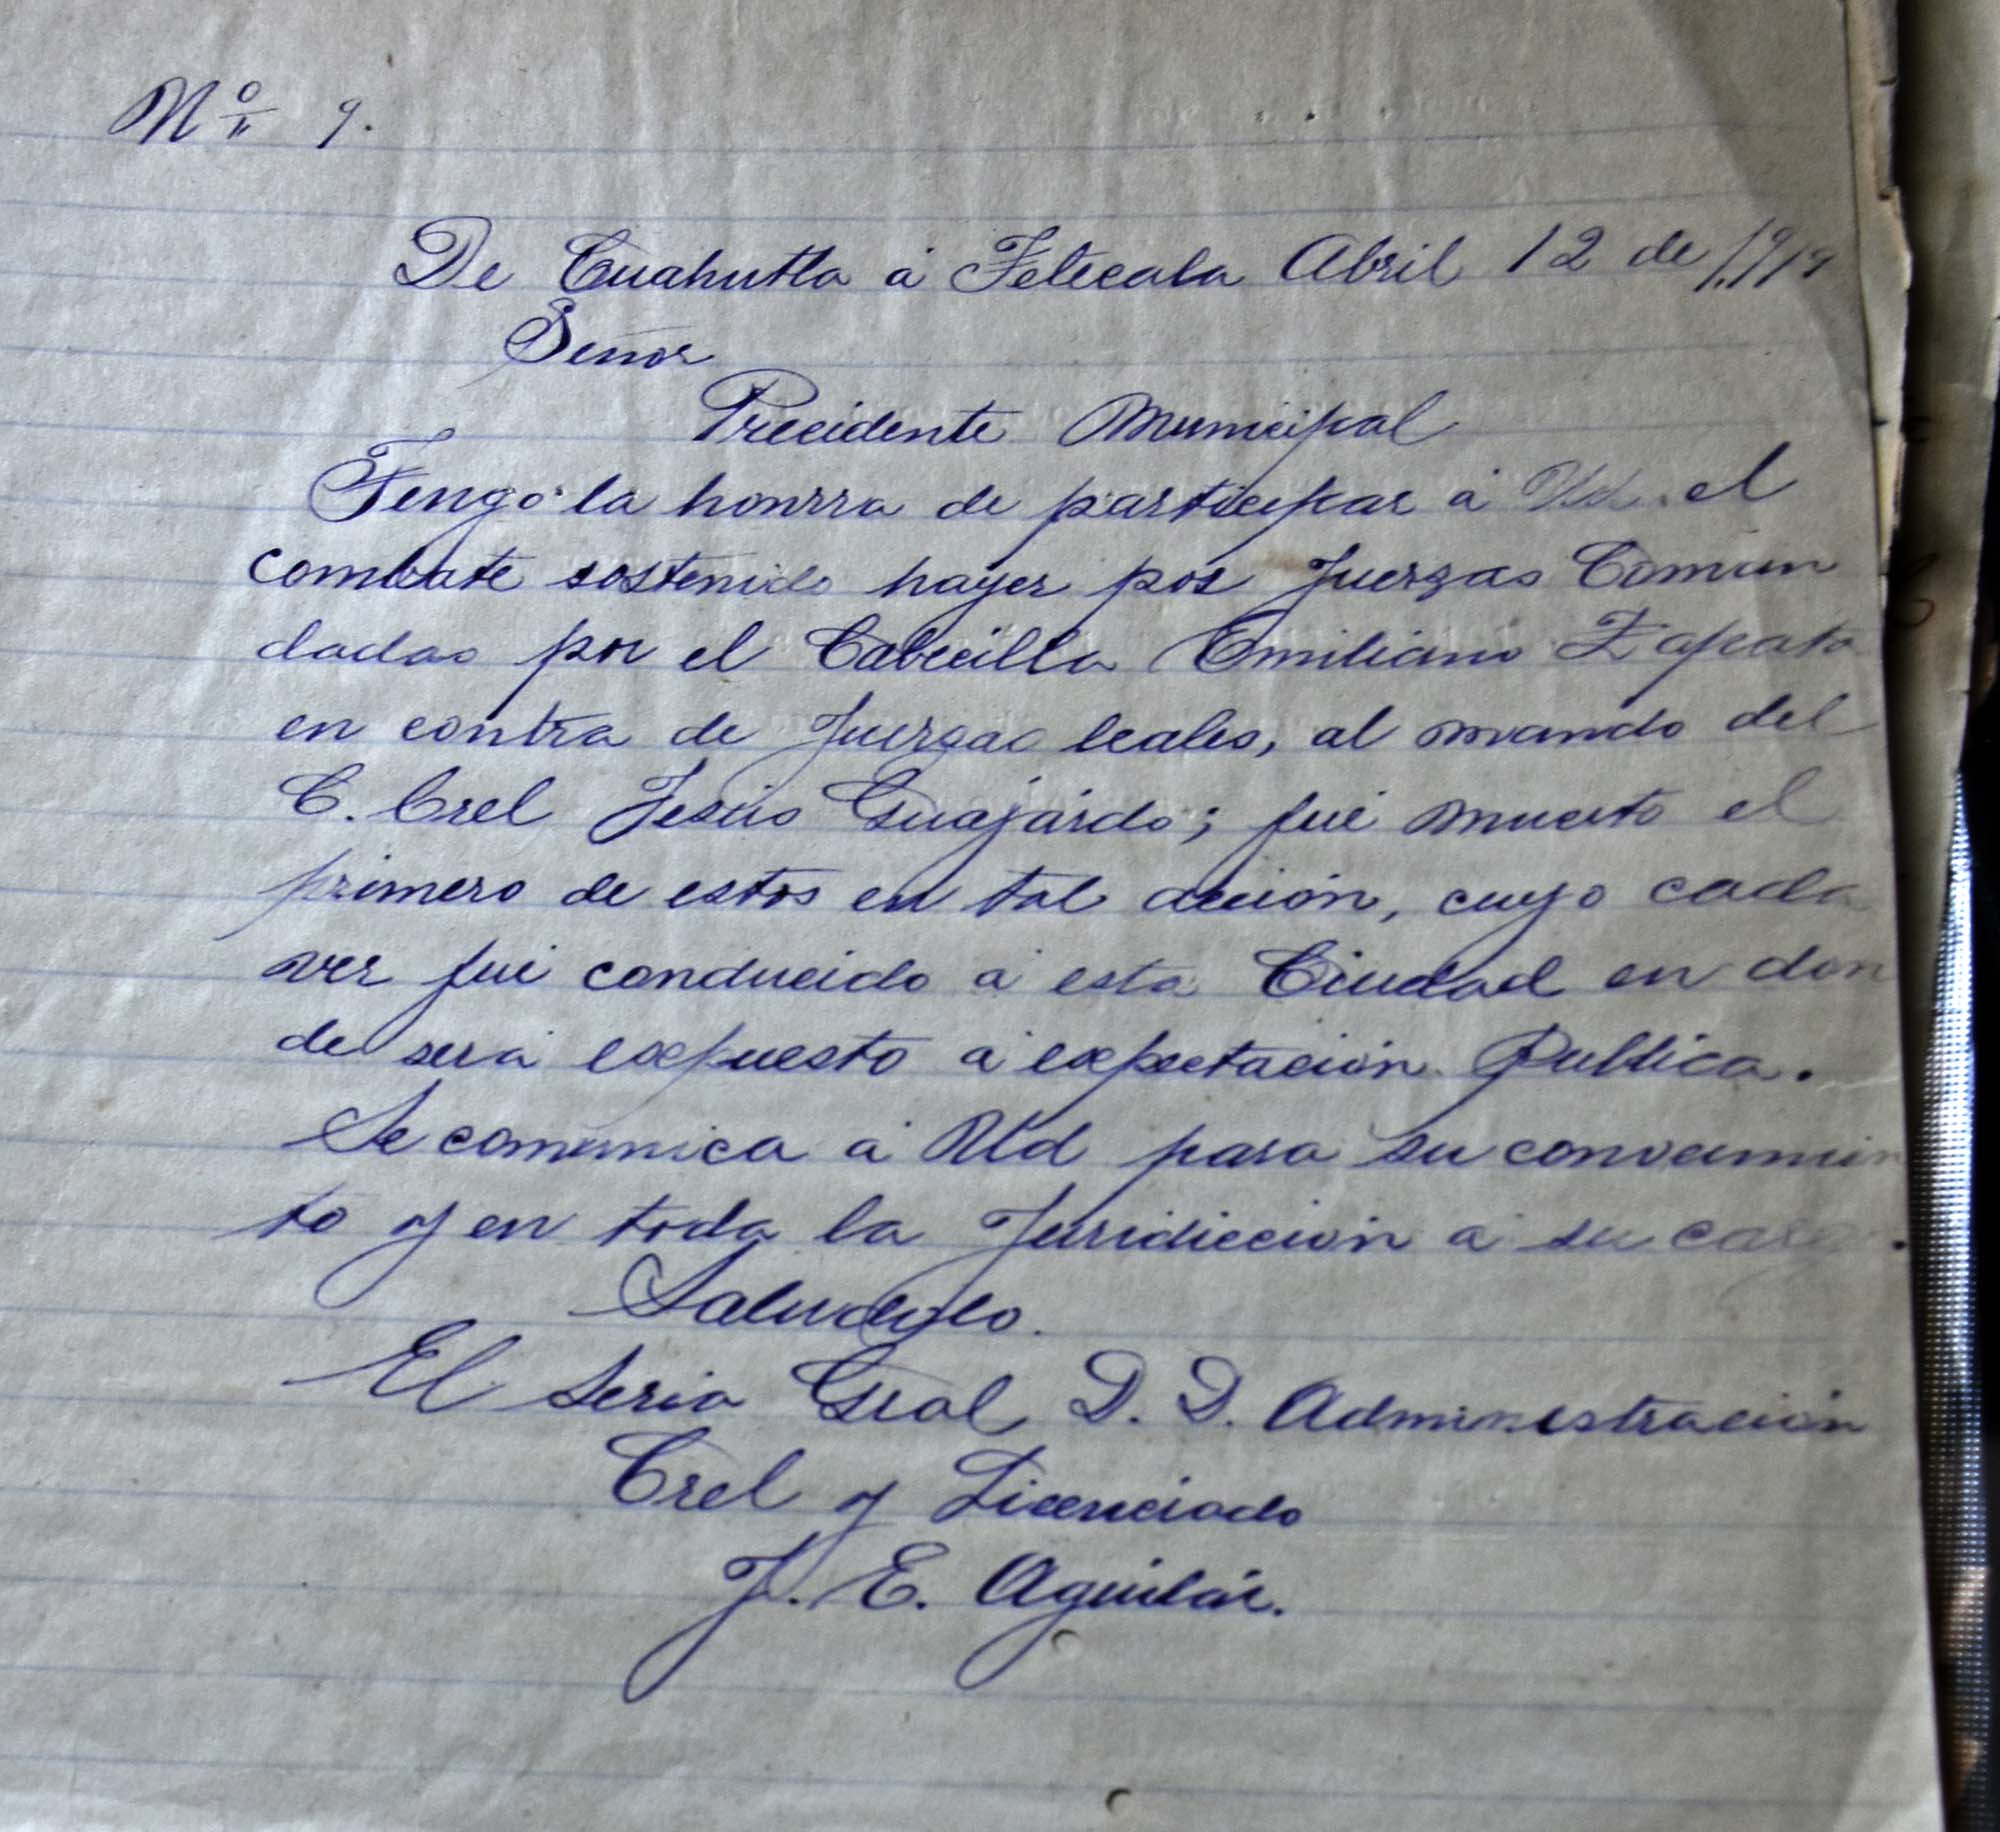 Nº 9.
De Cuahutla á Tetecala Abril 12 de 1,919
Señor
Precidente Municipal
Tengo la honrra de participar á Ud. el
combate sostenido hayer por fuerzas Comun
dadas por el Cabecilla Emiliano Zapata
en contra de fuerzas leales, al mando del
C. Crel Jesús Guajárdo; fué muerto el
primero de estos en tal acción, cuyo cada
ver fué conducido á esta Ciudad en don
de será expuesto á expectación Publica.
Se comunica á Ud para su conocimien
to y en toda la Juridicción á su cargo.
Saludolo.
El Serio Gral D. D. Administración
Crel y Licenciado
J. E. Aguilár.